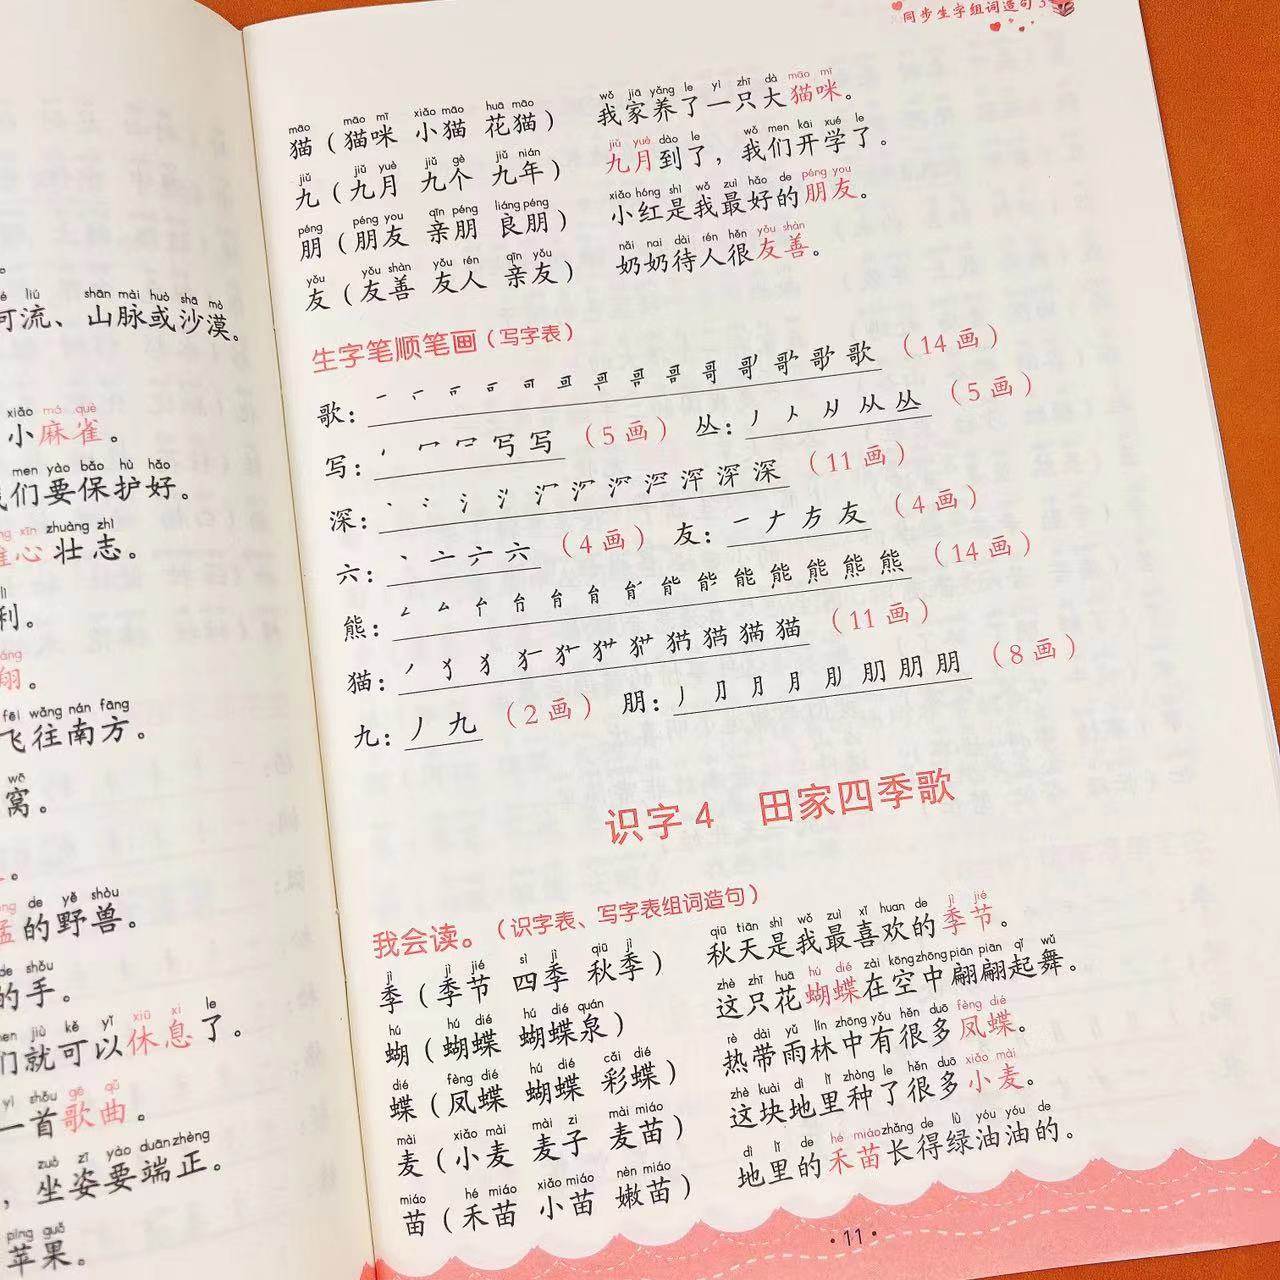 liú shān mài huò shā mò
流、山脉或沙漠。
xiǎo má què
小麻雀。
men yào bǎo hù hǎo
们要保护好。
xīn zhuàng zhì
心壮志。
lì
利。
翔。
fēi wǎng nán fāng
飞往南方。
wō
窝。
de yě shòu
猛的野兽。
de shǒu
的手。
men jiù kě yǐ xiū xi le
们就可以休息了。
yì shǒu gē qǔ
一首歌曲。
zuò zī yào duān zhèng
，坐姿要端正。
píng guǒ
苹果。
同步生字组词造句
māo māo mī xiǎo māo huā māo wǒ jiā yǎng le yì zhī dà māo mī
猫（猫咪 小猫 花猫） 我家养了一只大猫咪。
jiǔ jiǔ yuè jiǔ gè jiǔ nián jiǔ yuè dào le wǒ men kāi xué le
九（九月 九个 九年） 九月到了，我们开学了。
péng péng you qīn péng liáng péng xiǎo hóng shì wǒ zuì hǎo de péng you
朋（朋友 亲朋 良朋） 小红是我最好的朋友。
yǒu yǒu shàn yǒu rén qīn yǒu nǎi nai dài rén hěn yǒu shàn
友（友善 友人 亲友） 奶奶待人很友善。
生字笔顺笔画（写字表）
歌： 歌（14画）
写： 写（5画） 丛： 丛（5画）
深： 深（11画）
六： 六（4画） 友： 友（4画）
熊： 熊（14画）
猫： 猫（11画）
九：丿 九（2画） 朋： 朋（8画）
识字4 田家四季歌
我会读。（识字表、写字表组词造句）
jì jì jié sì jì qiū jì qiū tiān shì wǒ zuì xǐ huan de jì jié
季（季节 四季 秋季） 秋天是我最喜欢的季节。
hú hú dié hú dié quán zhè zhī huā hú dié zài kōng zhōng piān piān qǐ wǔ
蝴（蝴蝶 蝴蝶泉） 这只花蝴蝶在空中翩翩起舞。
dié fèng dié hú dié cǎi dié rè dài yǔ lín zhōng yǒu hěn duō fèng dié
蝶（凤蝶 蝴蝶 彩蝶） 热带雨林中有很多凤蝶。
mài xiǎo mài mài zi mài miáo zhè kuài dì lǐ zhòng le hěn duō xiǎo mài
麦（小麦 麦子 麦苗） 这块地里种了很多小麦。
miáo hé miáo xiǎo miáo nèn miáo dì lǐ de hé miáo zhǎng de lǜ yóu yóu de
苗（禾苗 小苗 嫩苗） 地里的禾苗长得绿油油的。
·11·